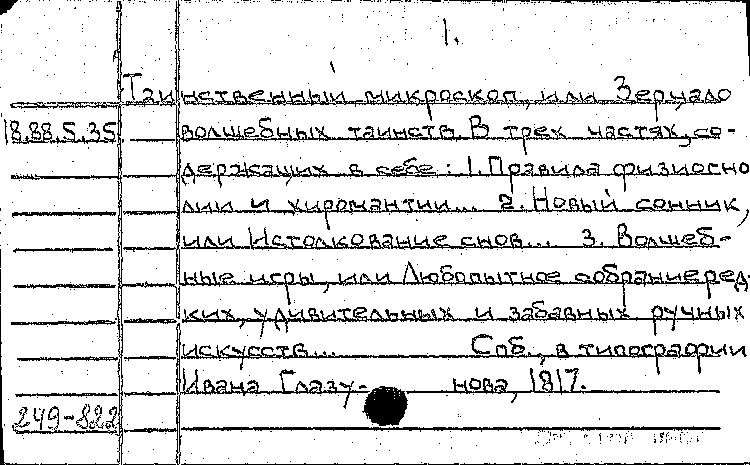 1.
Таинственный микроскоп, или Зерцало
18.88.5.35 волшебных таинств. В трех частях, со-
держащих в себе: 1. Правила физиогно
мии и хиромантии... 2. Новый сонник,
или Истолкование снов... 3. Волшеб-
ные игры, или Любопытное собрание ред-
ких, удивительных и забавных ручных
искусств... Спб., в типографии
Ивана Глазу- нова, 1817.
249-822